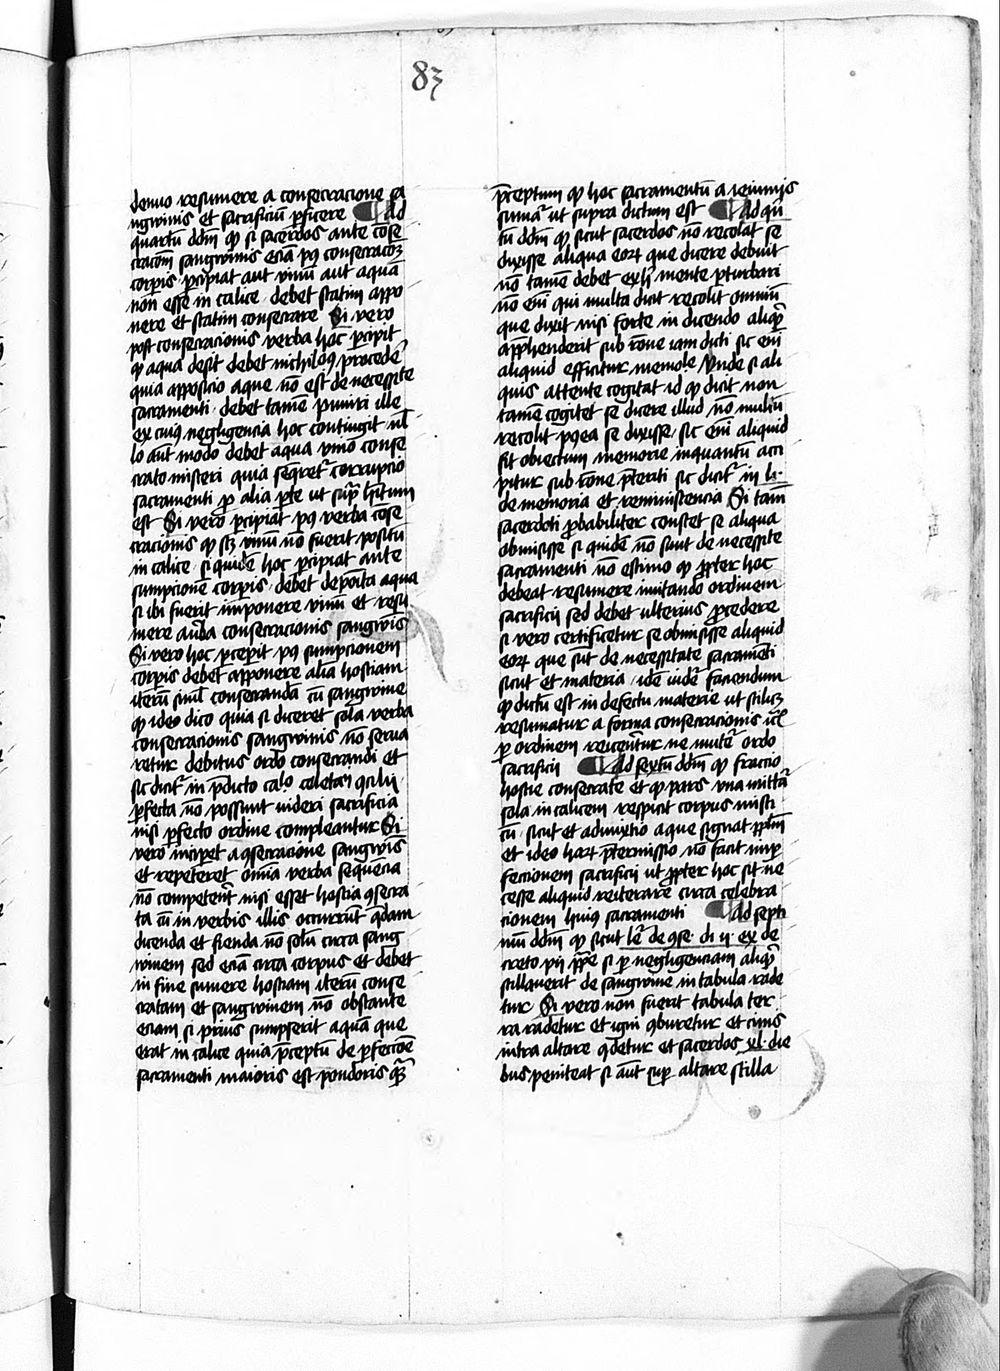 83
denuo resumere a consecracione sa
ngwinis et sacrificiū ꝑficere ¶ Ad
quartū ddm̄ qꝫ si sacerdos ante cōse
cracōm sangwinis eciā pꝯ consecracōꝫ
corpis ꝑcipiat aut vinū aut aquā
non esse in calice · debet statim appo
nere et statim consecrare Si vero
post consecracionis verba hoc ꝑcipit
qꝫ aqua desit debet nichilo9 procedē
quia apposicio aque nō est de necessite
sacramenti · debet tamē puniri ille
ex cui9 negligencia hoc contingit nl̄
lo aūt modo debet aqua vino conse
crato misceri quia seqret᷑ corrupcio
sacramenti ꝓ alia ꝑte ut sup̄ hītum
est Si vero ꝑcipiat pꝯ verba cōse
cracionis qꝫ sꝫ vinū nō fuerit positū
in calice · si quidē hoc ꝑcipiat ante
sumpcionē corpis · debet deposita aqua
si ibi fuerit imponere vinū et resu
mere a verba consecracionis sangwis
Si vero hoc ꝑceꝑit pꝯ sumpcionem
corpis debet apponere aliā hostiam
iterū simł consecrandā cū sangwine
qꝫ ideo dico quia si diceret sola verba
consecracionis sangwinis nō serua
retur debitus ordo consecrandi et
sic dicit᷑ in p̄dicto calo coletañ 9cilij
ꝑfecta nō possunt videri sacrificia
nisi ꝑfecto ordine compleantur Si
vero inciꝑet a 9secracione sangwis
et repeteret omīa verba sequēcia
nō competeret nisi esset hostia 9secra
ta cū in verbis illis occurrūt qdam
dicenda et fienda nō solū circa sang
winem sed eciā circa corpus et debet
in fine sumere hostiam iterū conse
cratam et sangwinem nō obstante
eciam si prius sumpserit aquā que
erat in calice quia p̄ceptū de ꝑfeccōe
sacramenti maioris est ponderis q̄ꝫ
p̄ceptum qꝫ hoc sacramentū a ieiunijs
sumat᷑ ut supra dictum est ¶ Ad qū
tū ddm̄ qꝫ sicut sacerdos nō recolat se
dixisse aliqua eoꝝ que dicere debuit
nō tamē debet ex h mente ꝑturbari
nō eīn qui multa dicit recolit omniū
que dixit nisi forte in dicendo aliqd
apprehenderit sub rōne iam dicti sic eīn
aliquid efficitur memole Vnde si ali
quis attente cogitat id qꝫ dicit non
tamē cogitet se dicere illud nō multū
recolit pꝯea se dixisse · sic eīn aliquid
fit obiectum memorie inquantū acci
pitur sub rōne p̄teriti sic dicit᷑ in li ·
de memoria et reminiscencia Si tam̄
sacerdoti ꝓbabiliter constet se aliqua
obmisisse si quidē nō sunt de necessite
sacramenti nō estimo qꝫ ꝓpter hoc
debeat resumere mutando ordinem
sacrificij sed debet ulterius ꝓcedere
si vero certificetur se obmisisse aliquid
eoꝝ que sūt de necessitate sacramēti
sicut et materia · idē vidēt᷑ faciendum
qꝫ dictū est in defectu materie ut scilicꝫ
resumatur a forma consecracionis
ꝑ ordinem reiterentur ne mutet᷑ ordo
sacrificij ¶ Ad sextū ddm̄ qꝫ fraccio
hostie consecrate et qꝫ pars vna mittat᷑
sola in calicem respicit corpus misti
cū · sicut et admixtio aque signat ppl̄m
et ideo haꝝ p̄termissio nō facit imꝑ
feccionem sacrificij ut ꝓpter hoc sit ne
cesse aliquid reiterare circa celebra
cionem huius sacramenti ¶ Ad septi
mū ddm̄ qꝫ sicut leḡ de 9se · di ij · ex de
creto pij pp̄e si ꝑ negligenciam aliqd
stillauerit de sangwine in tabula rade
tur Si vero non fuerit tabula ter
ra radetur et igni 9buretur et cinis
intra altare 9detur et sacerdos xl · die
bus peniteat si aūt suꝑ altare stilla